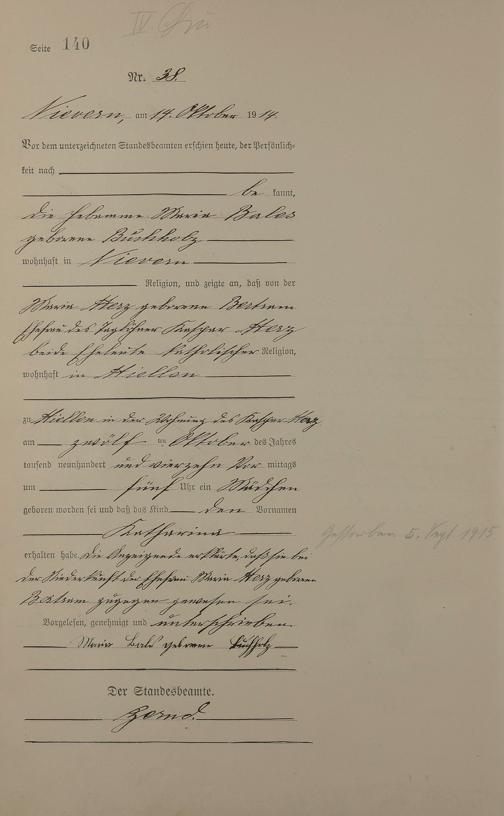 Seite 140
Nr. 38.
Nievern, am 14. Oktober 1914.
Vor dem unterzeichneten Standesbeamten erschien heute, der Persönlich-
keit nach
be kannt,
die Hebamme Maria Balos
geborene Buchholz
wohnhaft in Nievern
Religion, und zeigte an, daß von der
Maria Herz geborene Bertram
Ehefrau des Taglöhner Kaspar Herz
beide Eheleute katholischer Religion,
wohnhaft in Miellen
zu Miellen in der Wohnung des Kaspar Herz
am zwölf ten Oktober des Jahres
tausend neunhundert und vierzehn Vor mittags
um fünf Uhr ein Mädchen
geboren worden sei und daß das Kind den Vornamen
Katharina
gestorben 5. 1915
erhalten habe. Die Anzeigende erklärte, daß sie bei
der Niederkunft der Ehefrau Maria Herz geborene
Bertram zugegen gewesen sei.
Vorgelesen, genehmigt und unterschrieben.
Maria geborene Buchholz
Der Standesbeamte.